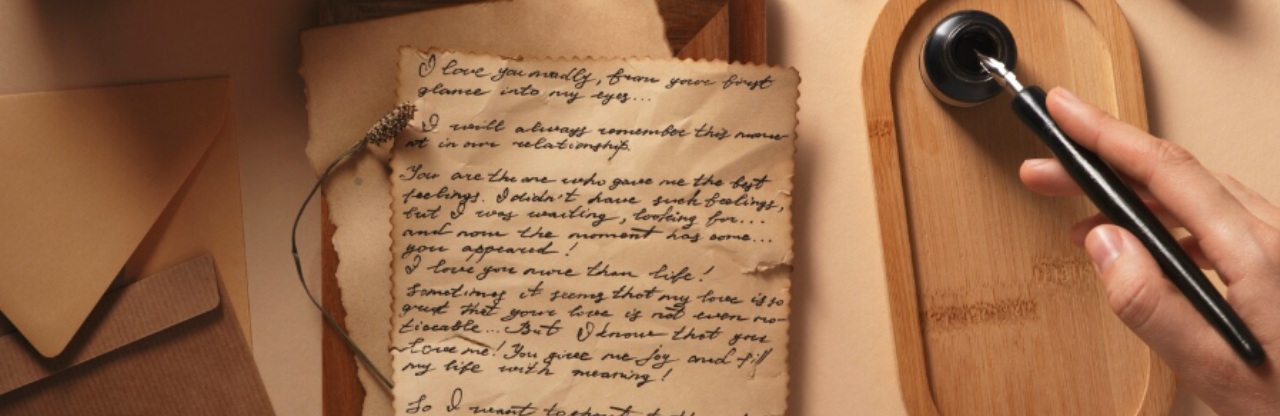 I love you madly, from your first
glance into my eyes...
I will always remember this mome-
nt in our relationship.
You are the one who gave me the best
feelings. I didn't have such feelings,
but I was waiting, looking for...
and now the moment has come...
you appeared!
I love you more than life!
Sometimes it seems that my love is so
great that your love is not even no-
ticeable... But I know that you
love me! You give me joy and fill
my life with meaning!
So I want to